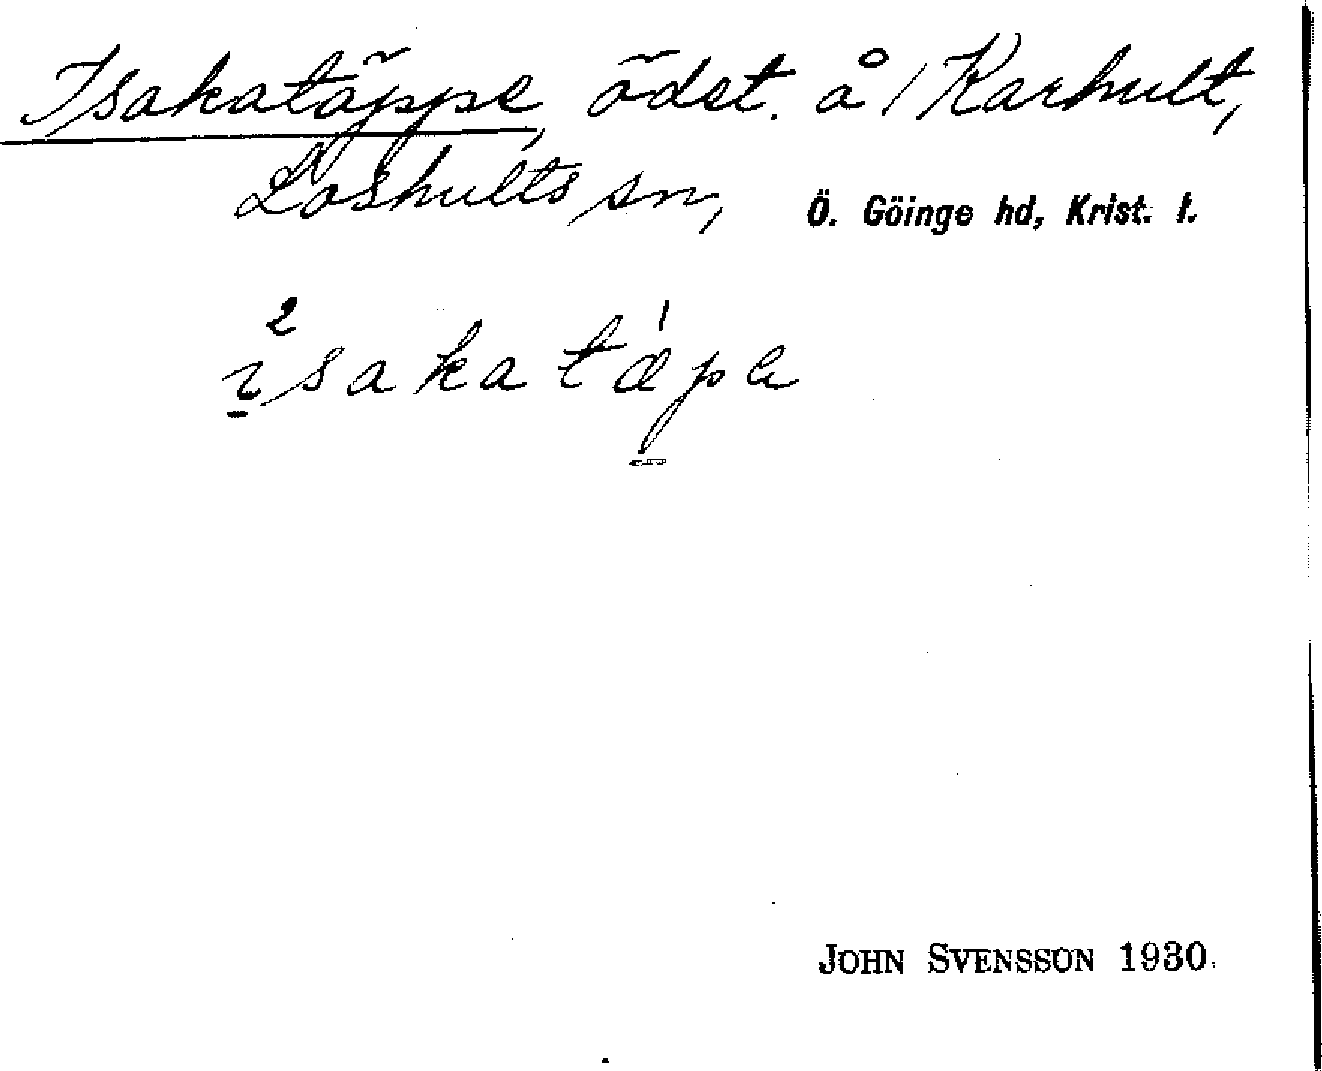 Isakatäppe, ödet. å / Karhult,
Loshults sn, Ö. Göinge hd, Krist. l.
²isakatæ̍pa
JOHN SVENSSON 1930.